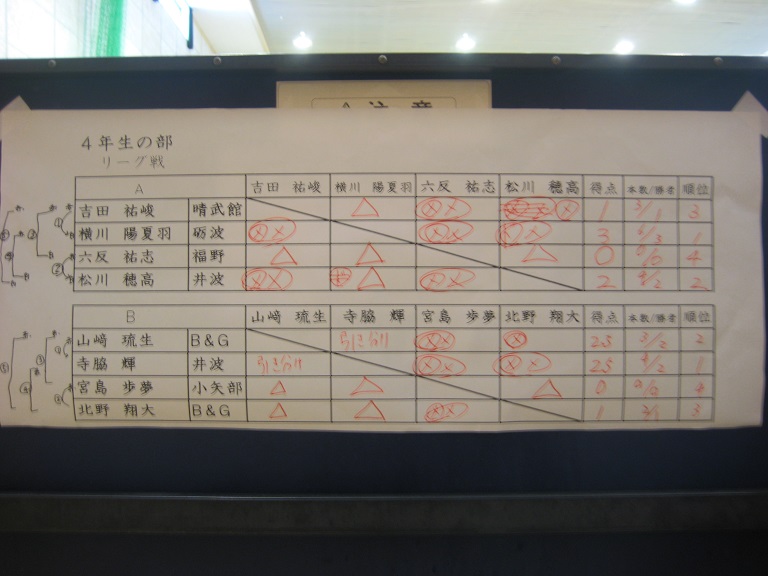 注意
4年生の部
リーグ戦
A 吉田 祐峻 横川 陽夏羽 六反 祐志 松川 穂高 得点 本数/勝者 順位
吉田 祐峻 晴武館 △ 1 3/1 3
横川 陽夏羽 砺波 3 6/3 1
六反 祐志 福野 △ △ △ 0 0/0 4
松川 穂高 井波 △ 2 4/2 2
B 山﨑 琉生 寺脇 輝 宮島 歩夢 北野 翔大 得点 本数/勝者 順位
山﨑 琉生 B&G 引き分け 2.5 3/2 2
寺脇 輝 井波 引き分け 2.5 4/2 1
宮島 歩夢 小矢部 △ △ △ 0 0/0 4
北野 翔大 B&G △ △ 1 2/1 3